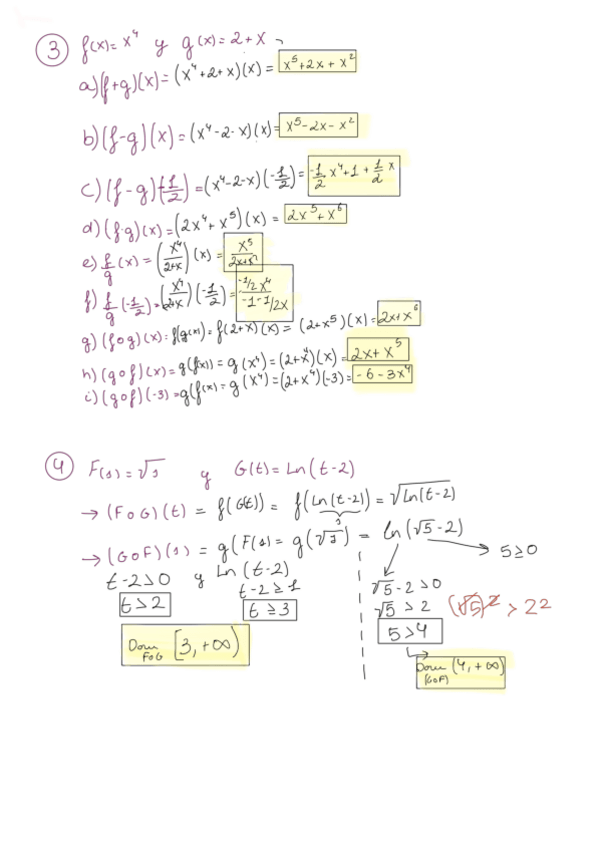 3 f(x)= x⁴ y g(x)= 2+x
a)(f+g)(x)=(x⁴+2+x)(x)= x⁵+2x+x²
b)(f-g)(x)=(x⁴-2-x)(x)= x⁵-2x-x²
c)(f-g)(-1/2)=(x⁴-2-x)(-1/2)= -1/2 x⁴+1+1/2 x
d)(f·g)(x)=(2x⁴+x⁵)(x) = 2x⁵+x⁶
e) f/g (x) = (x⁴/2+x)(x) = x⁵/2x+x²
f) f/g (-1/2)=(x⁴/2+x)(-1/2)= -1/2x⁴/-1-1/2x
g) (fog)(x)= f(g(x))= f(2+x)(x)= (2+x⁵)(x)= 2x+x⁶
h) (gof)(x)=g(f(x)) = g(x⁴)=(2+x⁴)(x)= 2x+x⁵
i) (gof)(-3)=g(f(x)= g(x⁴)=(2+x⁴)(-3)= -6-3x⁴
4 F(s)=√s y G(t)= Ln(t-2)
→ (FoG)(t) = f(G(t)) = f(Ln(t-2))=√Ln(t-2)
→ (GoF)(s) = g(F(s) = g(√s) = ln(√s-2)
s≥0
t-2>0 y Ln(t-2)
t-2≥1
t>2 t≥3
Dom FoG [3,+∞)
√s-2>0
√s>2 (√s)²>2²
s>4
Dom (GoF) (4,+∞)